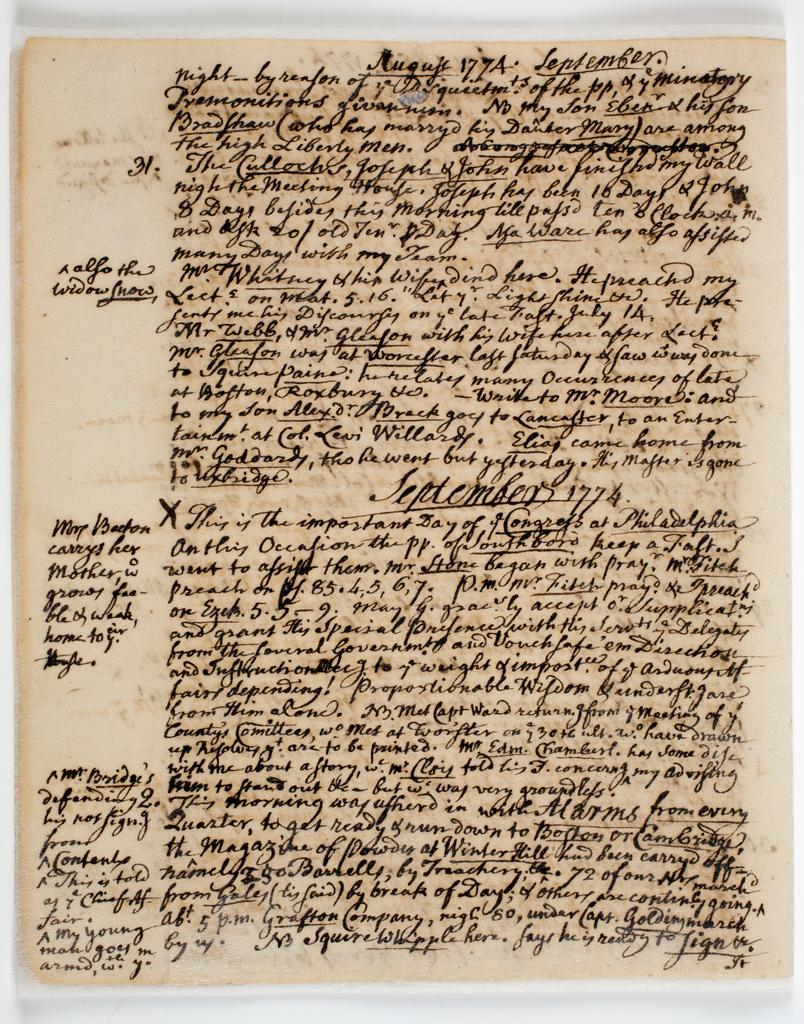 August 1774. September.
night — by reason of ye Disquietmts of the pp, & ye minatory
Premonitions given him. NB my Son Eben & his son
Bradshaw (who has marryd his Dauter Mary) are among
the high Liberty men.
31. The Cullochs, Joseph & John have finished my Wall
nigh the Meeting House. Joseph has been 10 Days & John
8 Days besides this Morning till pass'd Ten o'Clock a.m.
and ask 20/ old Tenr p Day. Asa Ware has also assisted
many Days with my Team.
^ also the
Widow Snow
Mr Whitney & his Wife dind here. He preachd my
Lecte on Mat. 5.16. "Let yr Light shine &c. He pre-
sents me his Discourses on ye late Fast. July 14.
Mr Webb, & Mr Gleason with his Wife here after Lecte.
Mr. Gleason was at Worcester last Saturday & saw wt was done
to Squire Paine: he relates many Occurrences of late
at Boston, Roxbury &c. — Write to Mr. Moore: and
to my Son Alexdr. Breck goes to Lancaster, to an Enter-
tainmt at Col. Levi Willards. Elias came home from
Mr. Goddards, tho he went but yesterday. His Master is gone
to Uxbridge.
September 1774.
Mrs Bacton
carrys her
Mother, wo
grows fee-
ble & weak,
home to yir
House.
X This is the important Day of ye Congress at Philadelphia
On this Occasion the pp. of Southboro keep a Fast. I
went to assist them. Mr. Stone began with prayr. Mr. Fitch
preach on Ps. 85.4,5,6,7. P.m. Mr. Fitch prayd & I preachd
on Ezek. 5.5–9. May G. gracly accept or Supplicatns
and grant His Special Presence with His Servts ye Delegates
from the several Governmts and Vouchsafe em Direction
and Instruction accg to ye weight & importce of ye arduous Af-
fairs depending! Proportionable Wisdom & underst.g are
from Him alone. NB Met Capt Ward returng from ye Meeting of ye
Countys Comittees, wo Met at Worster on ye 30th ult. wo have drawn
up Resolves yt are to be printed. Mr Edm. Chamberl. has some disc
with me about a story, wt Mr. Clois told his F. concerng my advising
him to stand out &c but wc was very groundless.
^ Mr Bridge's
defending
his not signg
from
^ Contents
^ This is told
as ye Chief Af-
fair.
^ My young
man goes in
armd, wth ye
2. This morning was usherd in with Alarms from every
Quarter, to get ready & run down to Boston or Cambridge.
the Magazine of Powder at Winter Hill had been carryd off—
namely 250 Barrells, by Treachery, &c. 72 of our Nrs marchd
from Gales (tis said) by break of Day; & others are continly going. ^
Abt 5 p.m. Grafton Company, nigh 80, under Capt. Golding march
by us. NB Squire Whipple here. Says he is ready to sign &c.
It